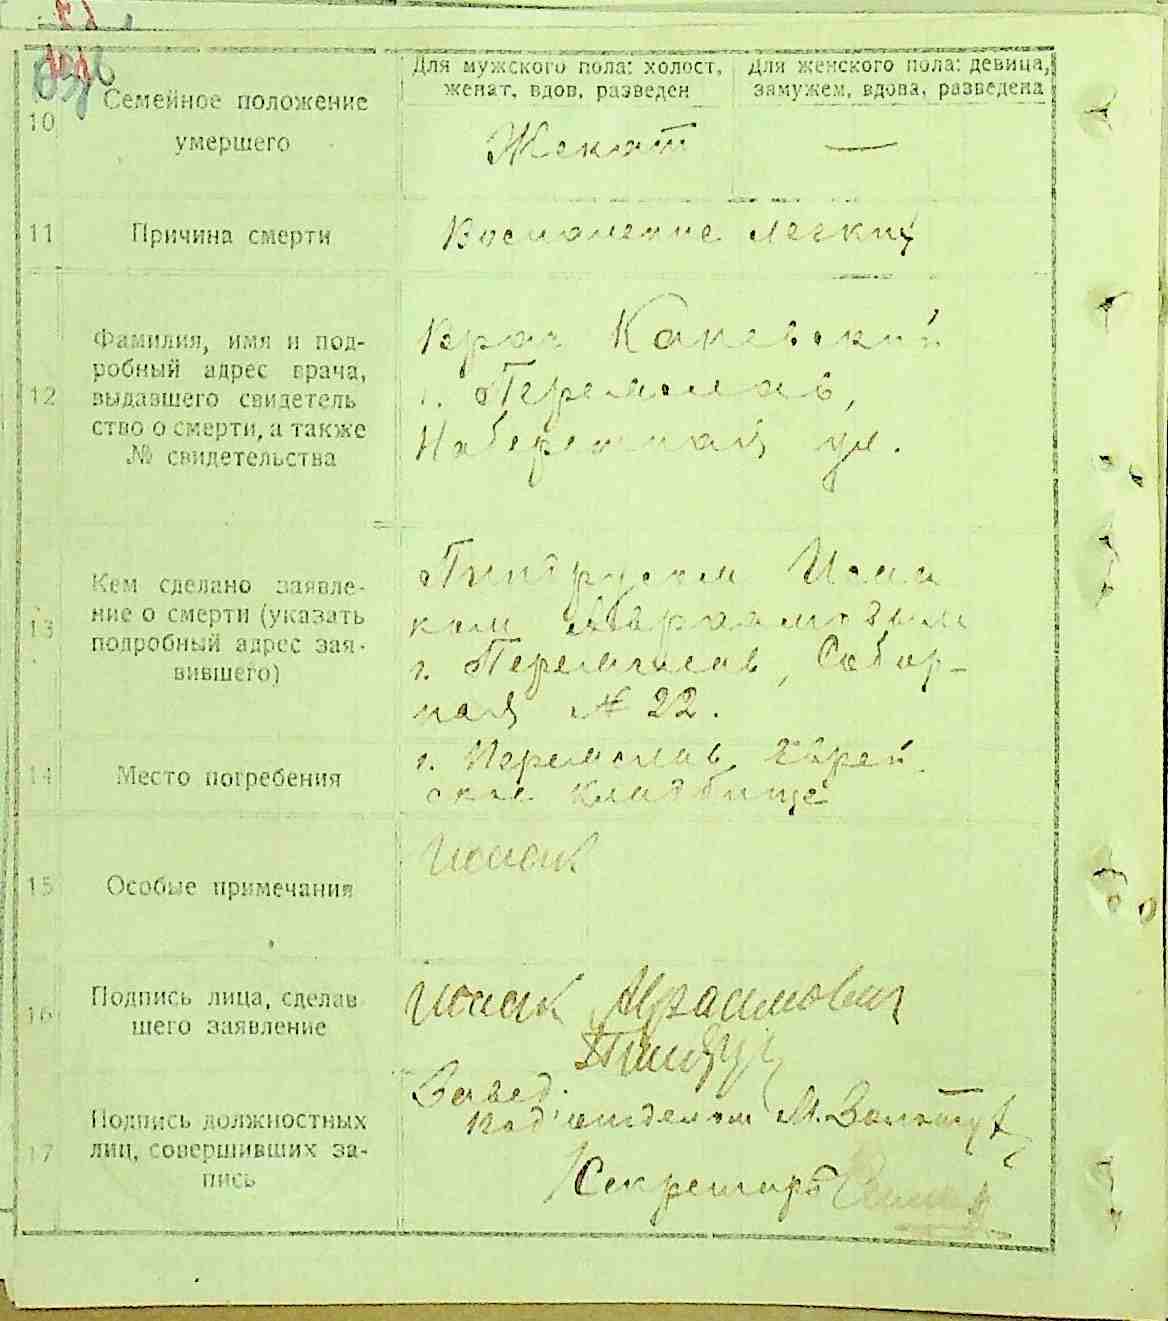 Для мужского пола: холост, женат, вдов, разведен
Для женского пола: девица, замужем, вдова, разведена
10
Семейное положение
умершего
Женат
—
11
Причина смерти
Воспаление легких
12
Фамилия, имя и под-
робный адрес врача,
выдавшего свидетель
ство о смерти, а также
№ свидетельства
Врач Каневский
г. Переяслав,
Набережная ул.
13
Кем сделано заявле-
ние о смерти (указать
подробный адрес зая-
вившего)
Исаа
ком Абраамовым
г. Переяслав, Собор-
ная № 22.
14
Место погребения
г. Переяслав Еврей
ское кладбище
15
Особые примечания
Исаак
16
Подпись лица, сделав
шего заявление
Исаак Абрамович
17
Подпись должностных
лиц, совершивших за-
пись
Завед.
Под'отделом М.
Секретарь